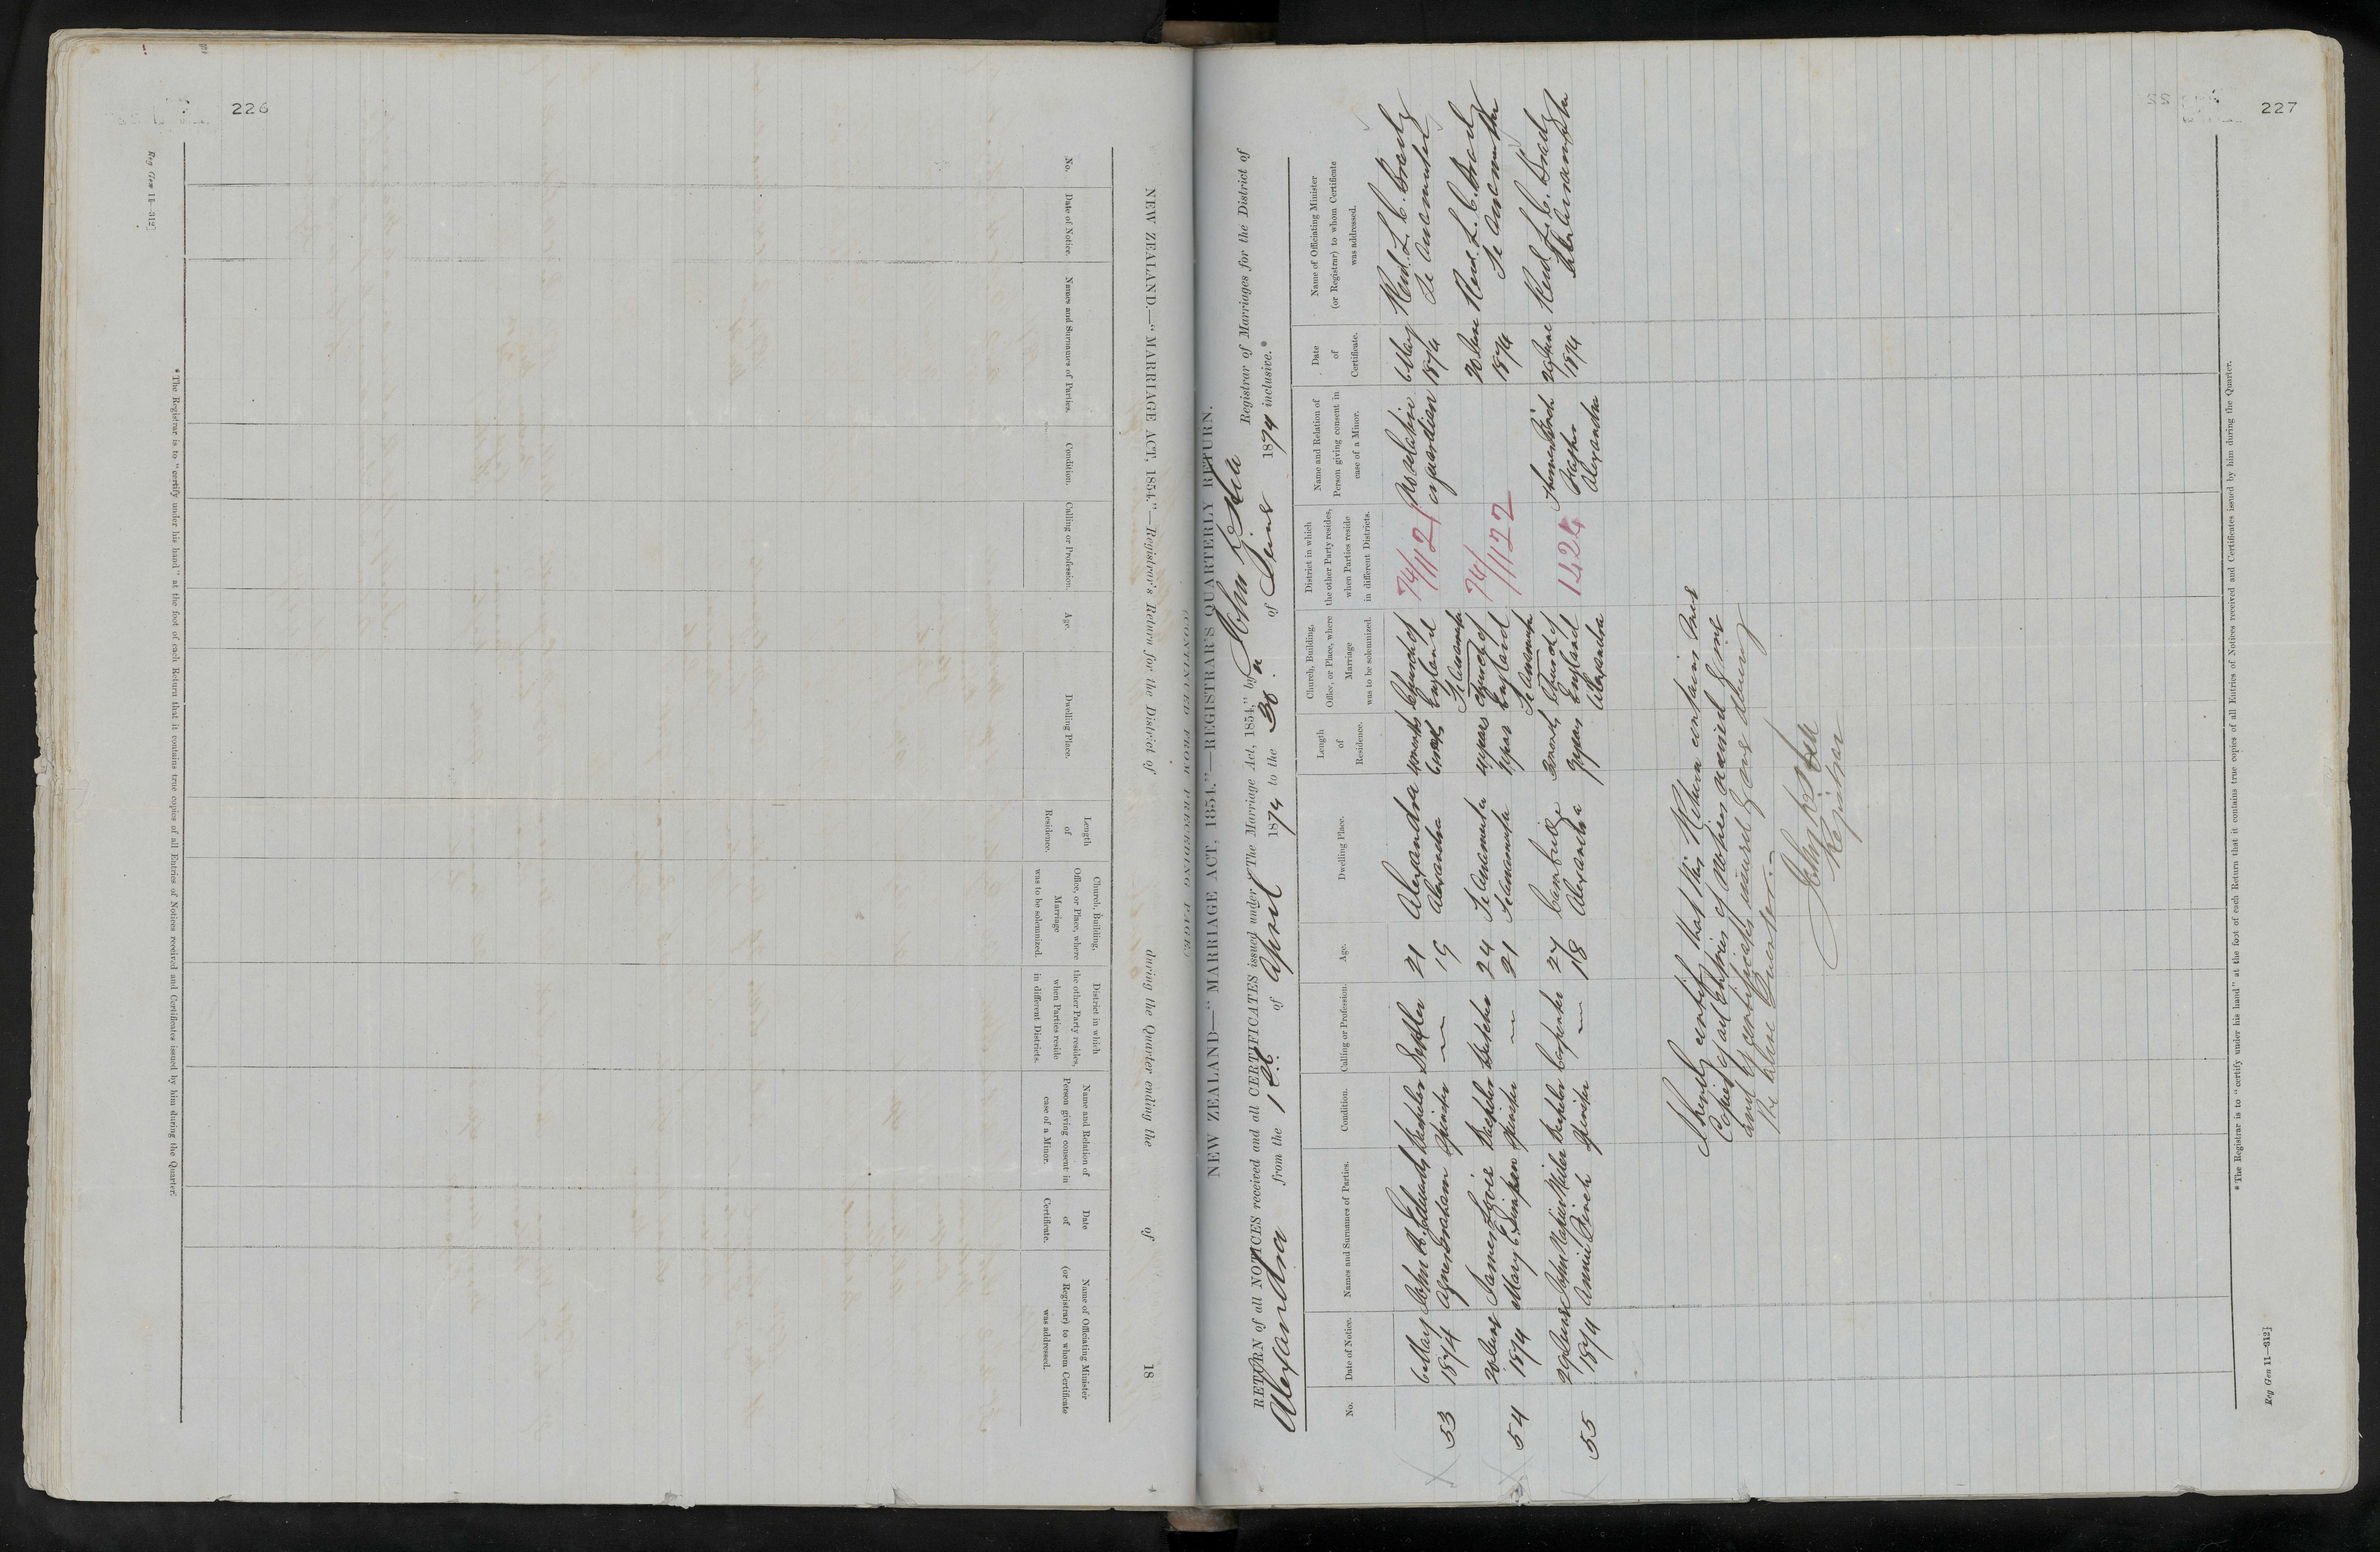 226
Reg Gen 11—312]
NEW ZEALAND.—"MARRIAGE ACT, 1854."—Registrar's Return for the District of during the Quarter ending the of 18
No.
Date of Notice.
Names and Surnames of Parties.
Condition.
Calling or Profession.
Age.
Dwelling Place.
Length
of
Residence.
Church, Building,
Office, or Place, where
Marriage
was to be solemnized.
District in which
the other Party resides,
when Parties reside
in different Districts.
Name and Relation of
Person giving consent in
case of a Minor.
Date
of
Certificate.
Name of Officiating Minister
(or Registrar) to whom Certificate
was addressed.
* The Registrar is to "certify under his hand" at the foot of each Return that it contains true copies of all Entries of Notices received and Certificates issued by him during the Quarter.
227
CONTINUED FROM PRECEDING PAGE
NEW ZEALAND—"MARRIAGE ACT, 1854."—REGISTRAR'S QUARTERLY RETURN.
RETURN of all NOTICES received and all CERTIFICATES issued under "The Marriage Act, 1854," by John Registrar of Marriages for the District of
Alexandra from the 1st of April 1874 to the 30th of June 1874 inclusive.*
No.
Date of Notice.
Names and Surnames of Parties.
Condition.
Calling or Profession.
Age.
Dwelling Place.
Length
of
Residence.
Church, Building,
Office, or Place, where
Marriage
was to be solemnized.
District in which
the other Party resides,
when Parties reside
in different Districts.
Name and Relation of
Person giving consent in
case of a Minor.
Date
of
Certificate.
Name of Officiating Minister
(or Registrar) to whom Certificate
was addressed.
53
6 May
1874
John R. Edwards
Agnes Graham
Bachelor
Spinster
Settler
—
21
19
Alexandra
Alexandra
4 months
6 months
Church of
England
Te Awamutu
74/1121
No relative
or guardian
6 May
1874
Revd. L. C. Brady
Te Awamutu
54
20 June
1874
James
Mary E. Simpson
Bachelor
Spinster
Butcher
—
24
21
Te Awamutu
Te Awamutu
4 years
Church of
England
Te Awamutu
74/1122
20 June
1874
Revd. L. C. Brady
Te Awamutu
55
29 June
1874
John Napier Miller
Annie Finch
Bachelor
Spinster
Carpenter
—
27
18
Cambridge
Alexandra
3 months
Church of
England
Alexandra
1424
Thomas Finch
Father
Alexandra
29 June
1874
Revd. L. C. Brady
I hereby certify that this Return contains true
Copies of all Entries of Notices received by me
and of certificates issued by me during
the above Quarter.—
John
Registrar
* The Registrar is to "certify under his hand" at the foot of each Return that it contains true copies of all Entries of Notices received and Certificates issued by him during the Quarter.
Reg Gen 11—312]